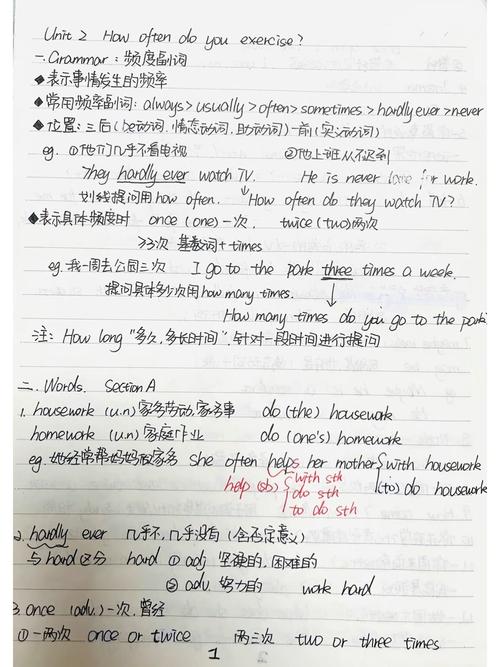 Unit 2 How often do you exercise?
一. Grammar: 频度副词
◆表示事情发生的频率
◆常用频率副词: always > usually > often > sometimes > hardly ever > never
◆位置: 三后(be动词, 情态动词, 助动词)一前(实义动词)
eg. ①他们几乎不看电视 ②他上班从不迟到
They hardly ever watch TV. He is never late for work.
划线提问用how often. How often do they watch TV?
◆表示具体频度时 once (one)一次, twice (two)两次
≥3次 基数词+times
eg. 我一周去公园三次 I go to the park three times a week.
提问具体多少次用how many times.
How many times do you go to the park
注: How long "多久, 多长时间", 针对一段时间进行提问
二. Words. Section A
1. housework (u.n) 家务劳动, 家务事 do (the) housework
homework (u.n) 家庭作业 do (one's) homework
eg. 她经常帮妈妈做家务 she often helps her mother with housework
(to) do housework
help (sb) with sth
do sth
to do sth
2. hardly ever 几乎不, 几乎没有 (含否定意义)
与hard区分 hard ① adj 坚硬的, 困难的
② adv. 努力的 work hard
3. once (adv.) 一次, 曾经
①一两次 once or twice 两三次 two or three times
1